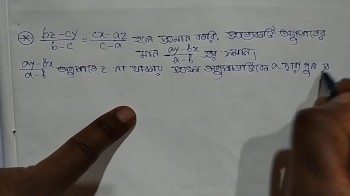 * (bz-cy)/(b-c) = (cx-az)/(c-a) হলে প্রমাণ করি, প্রত্যেকটি অনুপাতের
মান (ay-bx)/(a-b) এর সমান।
(ay-bx)/(a-b) অনুপাতে z না থাকায় প্রথম অনুপাতটিকে a দ্বারা গুন